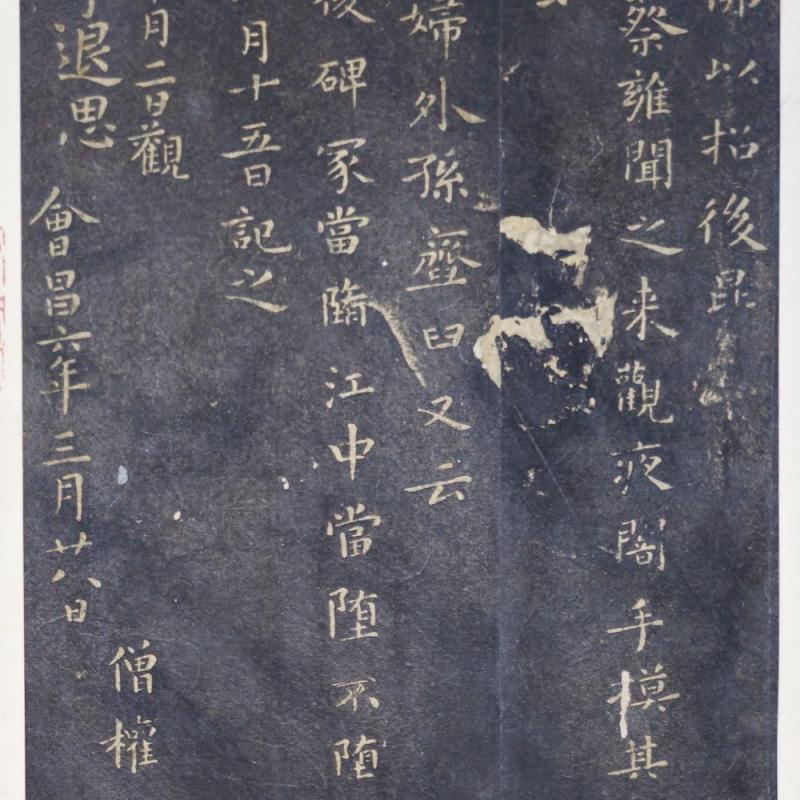 以招後昆
蔡雍聞之来觀夜闇手摸其
婦外孫齏臼又云
後碑冢當隋江中當堕不堕
月十五日記之
月二日觀
僧權
退思
會昌六年三月廿八日